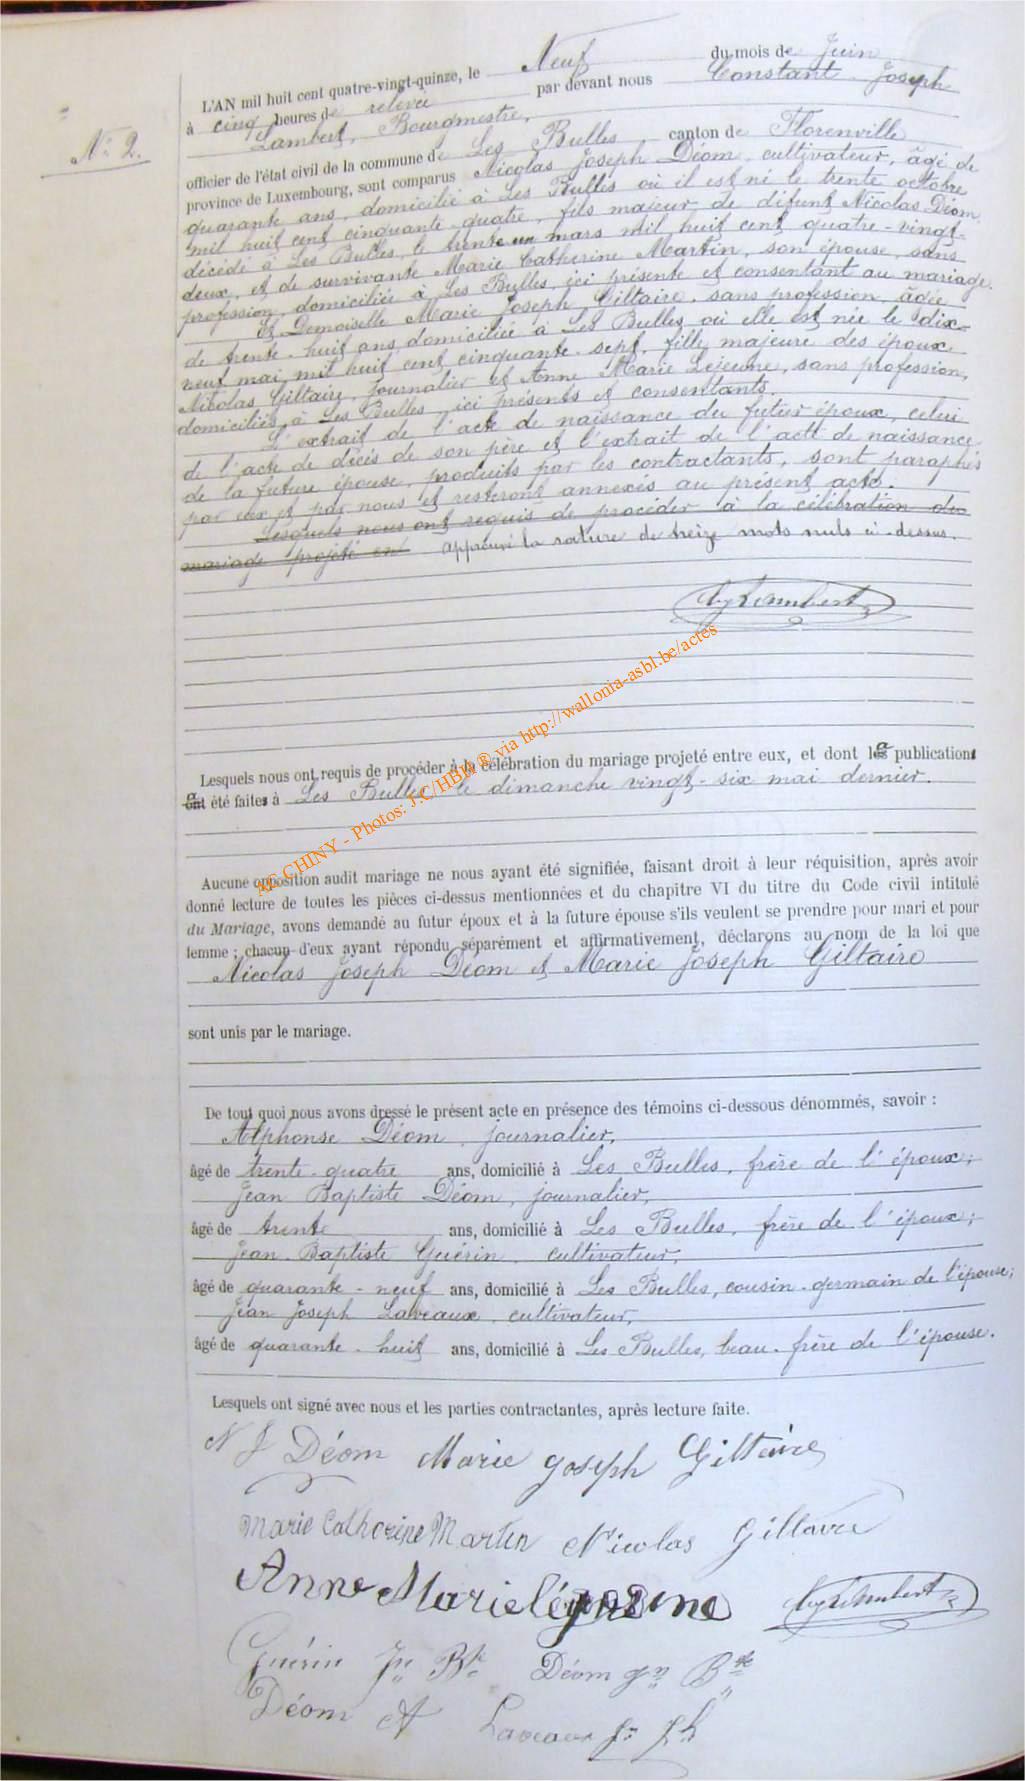 L'AN mil huit cent quatre-vingt-quinze, le Neuf du mois de Juin
à cinq heures de relevée par devant nous Constant Joseph
Lambert, Bourgmestre,
N° 2.
officier de l'état civil de la commune de Les Bulles, canton de Florenville
province de Luxembourg, sont comparus Nicolas Joseph Déom, cultivateur, âgé de
quarante ans, domicilié à Les Bulles où il est né le trente octobre
mil huit cent cinquante-quatre, fils majeur de défunt Nicolas Déom,
décédé à Les Bulles, le trente un mars mil huit cent quatre-vingt-
deux, et de survivante Marie Catherine Martin, son épouse, sans
profession, domiciliée à Les Bulles, ici présente et consentant au mariage.
Et Demoiselle Marie Joseph Giltaire, sans profession, âgée
de trente-huit ans, domiciliée à Les Bulles, où elle est née le dix-
neuf mai mil huit cent cinquante-sept, fille majeure des époux
Nicolas Giltaire, Journalier et Anne Marie Lejeune, sans profession,
domiciliés à Les Bulles, ici présents et consentants.
L'extrait de l'acte de naissance du futur époux, celui
de l'acte de décès de son père et l'extrait de l'acte de naissance
de la future épouse, produits par les contractants, sont paraphés
par eux et par nous et resteront annexés au présent acte.
Lesquels nous ont requis de procéder à la célébration du
mariage projeté en approuvé la rature de treize mots nuls ci-dessus.
CjLambert
Lesquels nous ont requis de procéder à la célébration du mariage projeté entre eux, et dont la publication
a été faite à Les Bulles le dimanche vingt-six mai dernier.
Aucune opposition audit mariage ne nous ayant été signifiée, faisant droit à leur réquisition, après avoir
donné lecture de toutes les pièces ci-dessus mentionnées et du chapitre VI du titre du Code civil intitulé
du Mariage, avons demandé au futur époux et à la future épouse s'ils veulent se prendre pour mari et pour
femme ; chacun d'eux ayant répondu séparément et affirmativement, déclarons au nom de la loi que
Nicolas Joseph Déom et Marie Joseph Giltaire
sont unis par le mariage.
De tout quoi nous avons dressé le présent acte en présence des témoins ci-dessous dénommés, savoir :
Alphonse Déom, journalier,
âgé de trente-quatre ans, domicilié à Les Bulles, frère de l'époux;
Jean Baptiste Déom, journalier,
âgé de trente ans, domicilié à Les Bulles, frère de l'époux;
Jean-Baptiste Guérin, cultivateur,
âgé de quarante-neuf ans, domicilié à Les Bulles, cousin-germain de l'épouse;
Jean Joseph Laveaux, cultivateur,
âgé de quarante-huit ans, domicilié à Les Bulles, beau-frère de l'épouse.
Lesquels ont signé avec nous et les parties contractantes, après lecture faite.
N J Déom Marie Joseph Giltaire
Marie Catherine Martin Nicolas Giltaire
Anne Marie léjeune CjLambert
Guérin Jn Bte Déom Jn Bte
Déom A Laveaux Jn Jh
AC CHINY - Photos: J.C/HBH ® via http://wallonia-asbl.be/actes